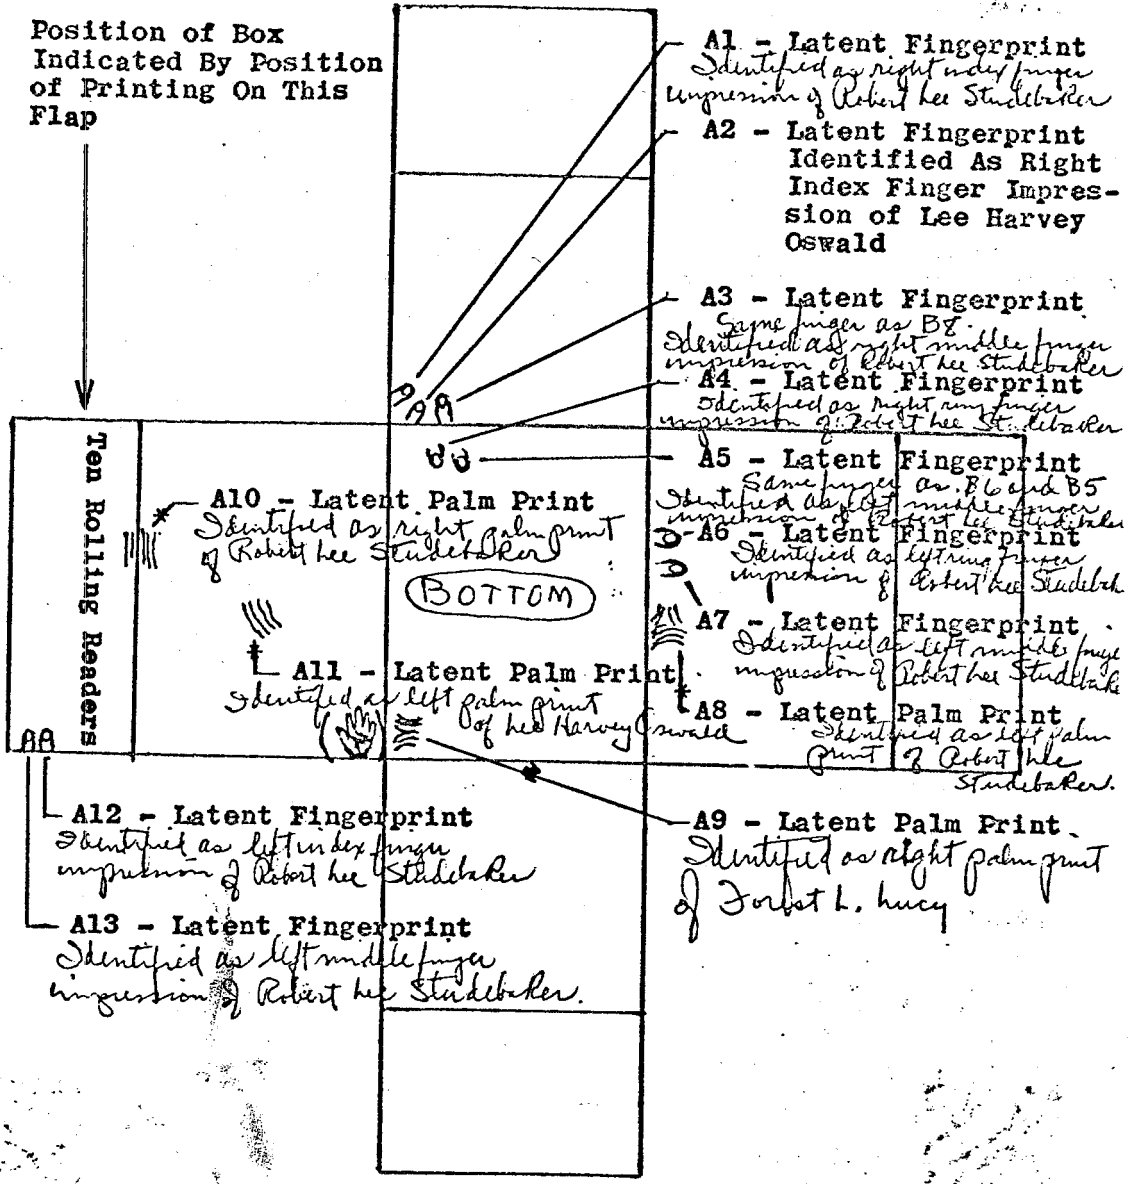 Position of Box
Indicated By Position
of Printing On This
Flap
A1 - Latent Fingerprint
Identified as right index finger
impression of Robert Lee Studebaker
A2 - Latent Fingerprint
Identified As Right
Index Finger Impres-
sion of Lee Harvey
Oswald
A3 - Latent Fingerprint
Same finger as B8.
Identified as right middle finger
impression of Robert Lee Studebaker
A4 - Latent Fingerprint
Identified as right ring finger
impression of Robert Lee Studebaker
A5 - Latent Fingerprint
Same finger as B6 and B5
Identified as left middle finger
impression of Robert Lee Studebaker
A6 - Latent Fingerprint
Identified as left ring finger
impression of Robert Lee Studebak
A7 - Latent Fingerprint
Identified as left middle finge
impression of Robert Lee Studebake
A8 - Latent Palm Print
Identified as left palm
print of Robert Lee
Studebaker.
A9 - Latent Palm Print
Identified as right palm print
of Forest L. Lucy
Ten Rolling Readers
A10 - Latent Palm Print
Identified as right palm print
of Robert Lee Studebaker
BOTTOM
A11 - Latent Palm Print
Identified as left palm print
of Lee Harvey Oswald
A12 - Latent Fingerprint
Identified as left index finger
impression of Robert Lee Studebaker
A13 - Latent Fingerprint
Identified as left middle finger
impression of Robert Lee Studebaker.